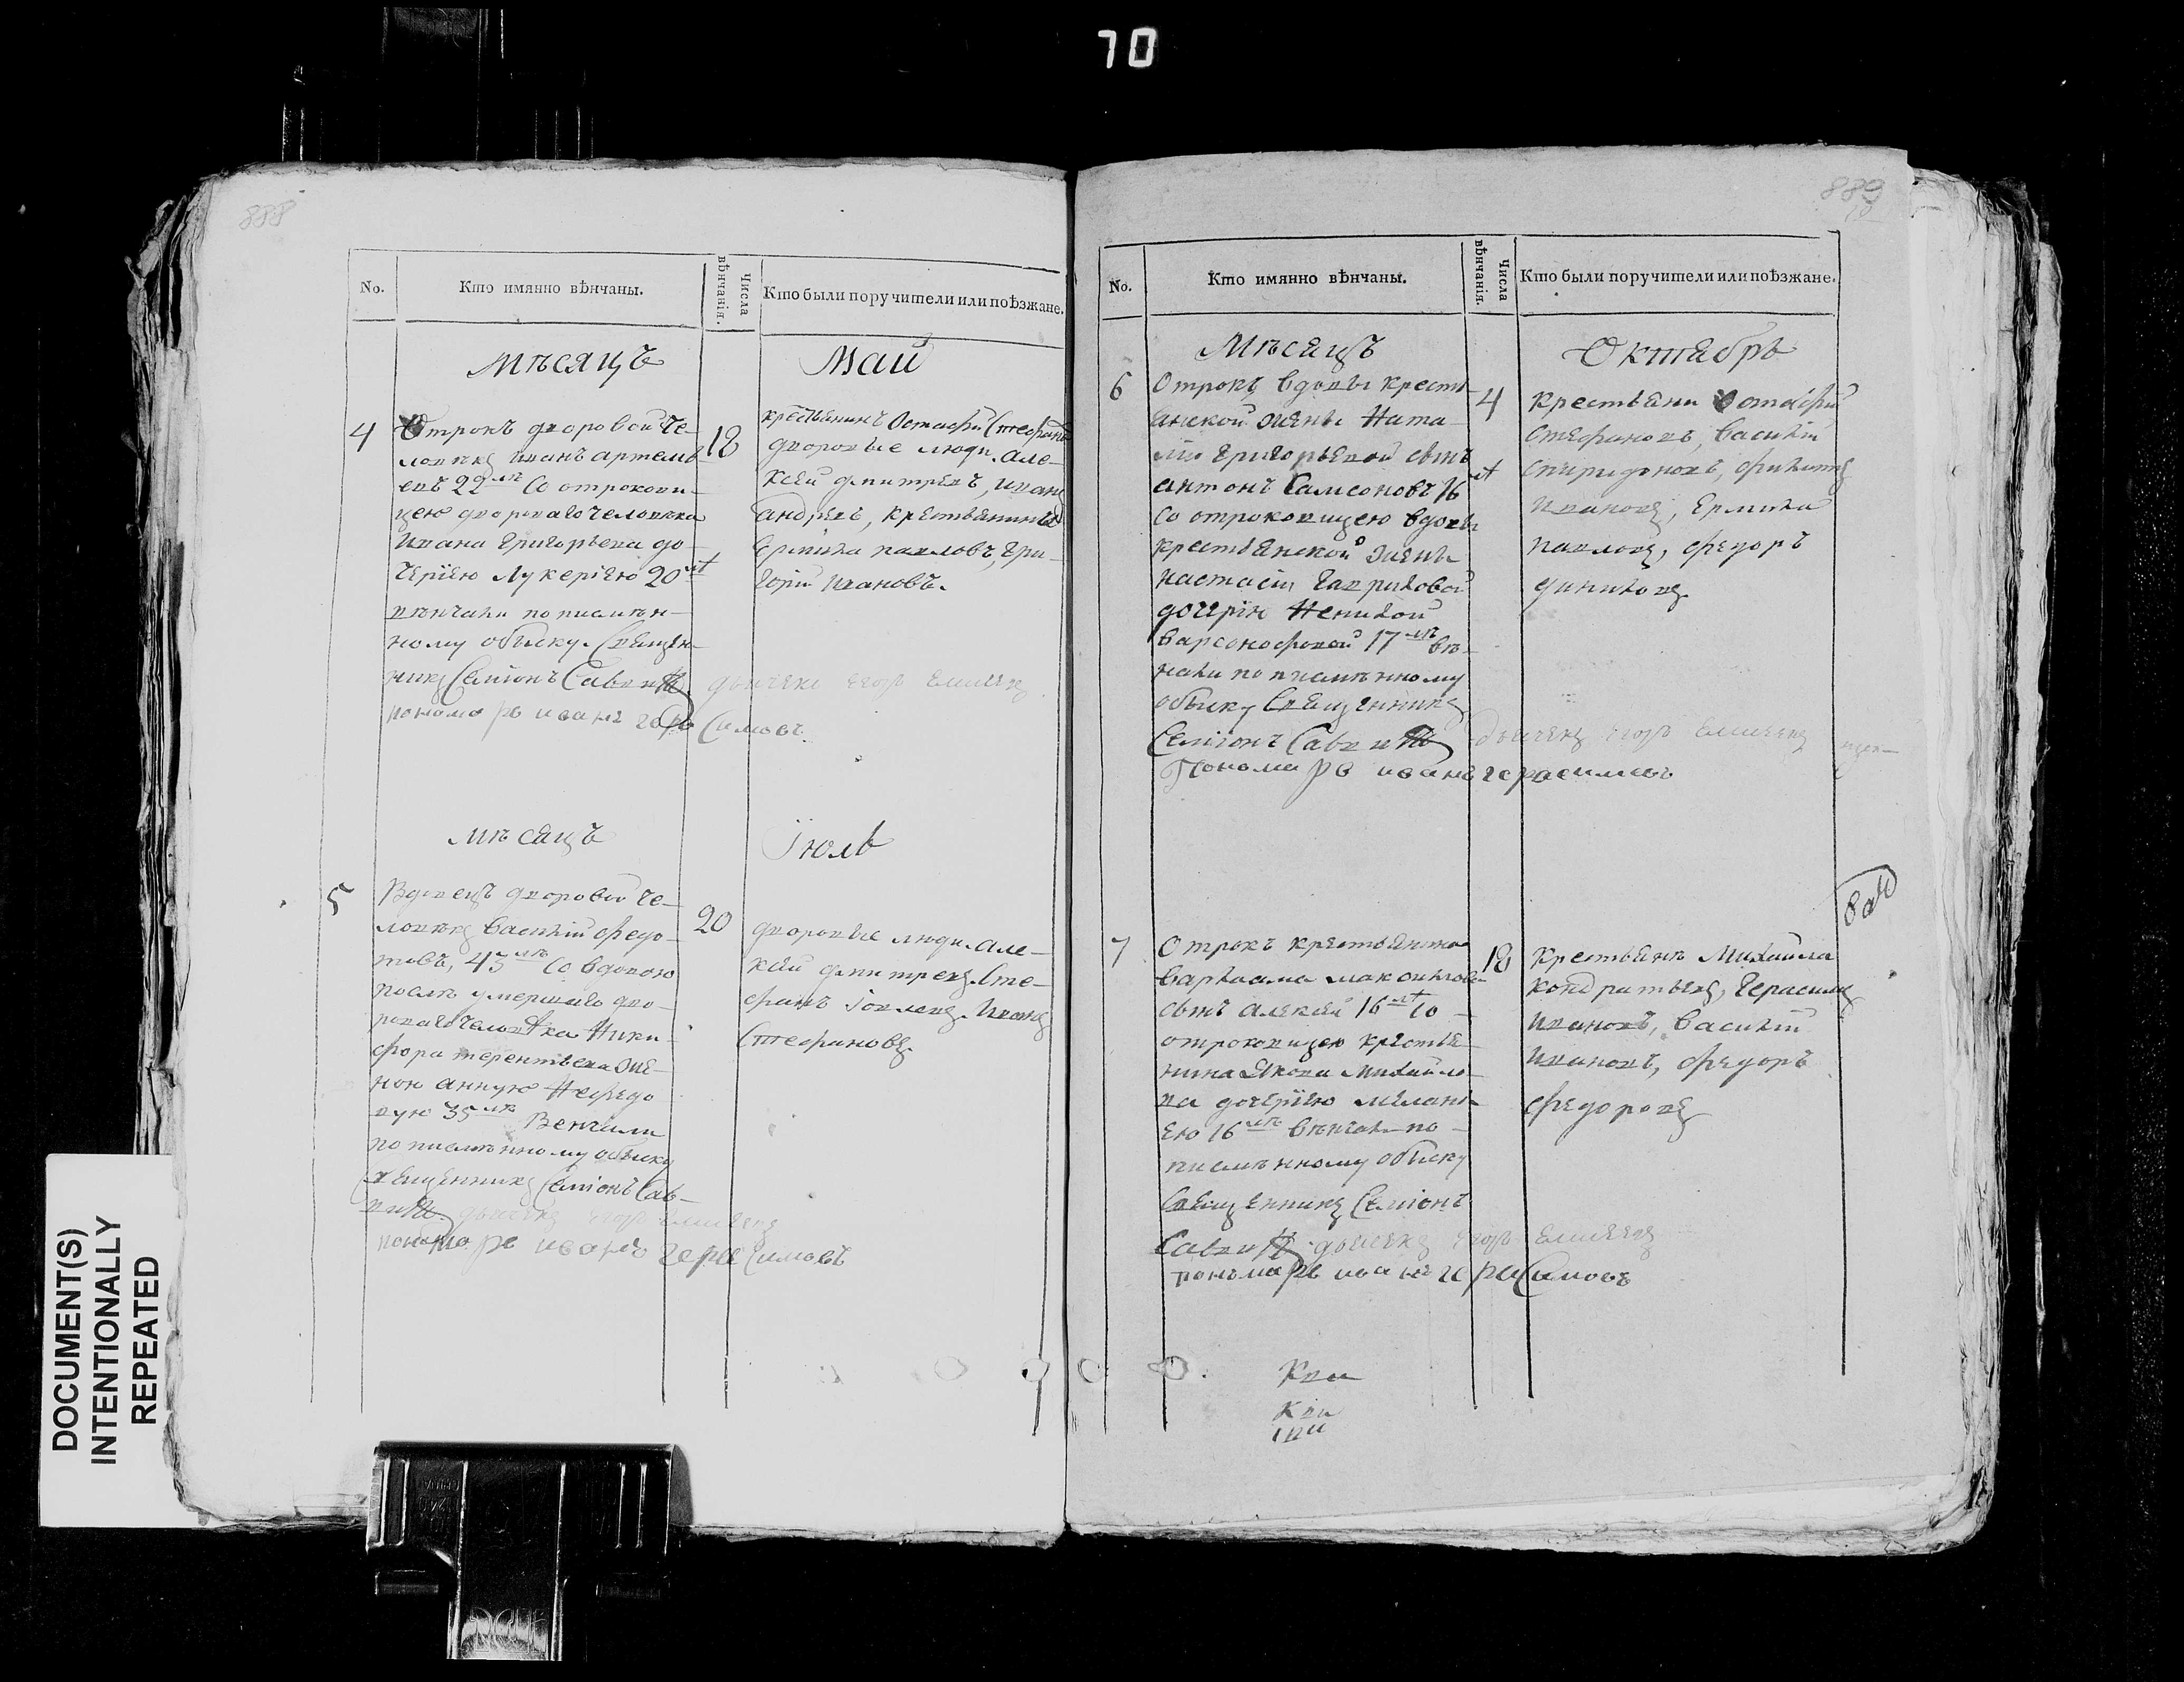 70
888
No.
Кто имянно вѣнчаны.
Числа вѣнчанія.
Кто были поручители или поѣзжане.
мѣсяцъ
Май
4
Отрокъ дворовой че-
ловѣкъ иванъ артемь-
евъ 22 лѣ Со отрокови-
цею двороваго человѣка
Ивана Григорьева до-
черïею Лукерïею 20 лѣт
вѣнчаны по писмѣн-
ному обыску. Священ-
никъ Семïонъ
дьячекъ егор
пономарь иванъ герасимовъ
18
крестьянинъ Остафй Стефано
дворовые люди, але-
ксей дмитревъ, иванъ
андревъ, крестьянины
Ермила павловъ, Гри-
горïй ивановъ.
мѣсяцъ
Июль
5
Вдовецъ дворовой че-
ловѣкъ василïй федо-
товъ, 45 лѣ Со вдовою
послѣ умершаго дво-
роваго человѣка Ники-
фора терентьева же-
ною анною Нефедо
вую 35 лѣ Венчали
по писмѣнному обыску
Священникъ Семïонъ Сав-
дьячекъ егор
пономарь иванъ герасимовъ
20
дворовые люди. Але-
ксей дмитревъ. Сте-
фанъ Иванъ
Стефановъ.
889
No.
Кто имянно вѣнчаны.
Числа вѣнчанія.
Кто были поручители или поѣзжане.
Мѣсяцъ
Октябрь
6
Отрокъ вдовы кресть-
анской жены Ната-
лïи Григорьевой сынъ
антонъ Самсоновъ 16 лѣт
со отроковицею вдовы
крестьянской жены
настасïи Гавриловой
дочерïю
варсонофвой 17 лѣ вѣ-
чали по писмѣнному
обыску Священникъ
Семïонъ дьячекъ егор
Пономарь иванъ герасимовъ
4
крестьяни Остафïй
Стефановъ, василïй
спиридоновъ, филипъ
ивановъ, Ермила
павловъ, федоръ
даниловъ.
7
Отрокъ крестьянина
варлаама максимова
сынъ алексей 16 лѣт со
отроковицею крестья-
нина Якова Михайло-
ва дочерïею мелань-
ею 16 лѣ вѣнчаны по
писмѣнному обыску
Священникъ Семïонъ
дьячекъ егор
пономарь иванъ герасимовъ
18
крестьянъ Михайла
кондратьевъ, Герасимъ
ивановъ, василïй
ивановъ, федоръ
федоровъ
DOCUMENT(S)
INTENTIONALLY
REPEATED